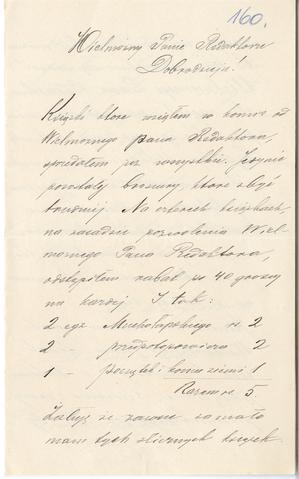 160.
Wielmożny Panie Redaktorze
Dobrodzieju!
Książki które wziąłem w komis od
Wielmożnego Pana Redaktora,
sprzedałem już wszystkie. Jedynie
pozostały broszury, które zbyć
trudniej. Na czterech książkach,
na zasadzie pozwolenia Wiel-
możnego Pana Redaktora,
odstąpiłem rabat po 40 groszy
na każdej I tak:
2 egz 2
2 2
1 - 1
Razem 5
że zawsze za mało
mam tych ślicznych książek